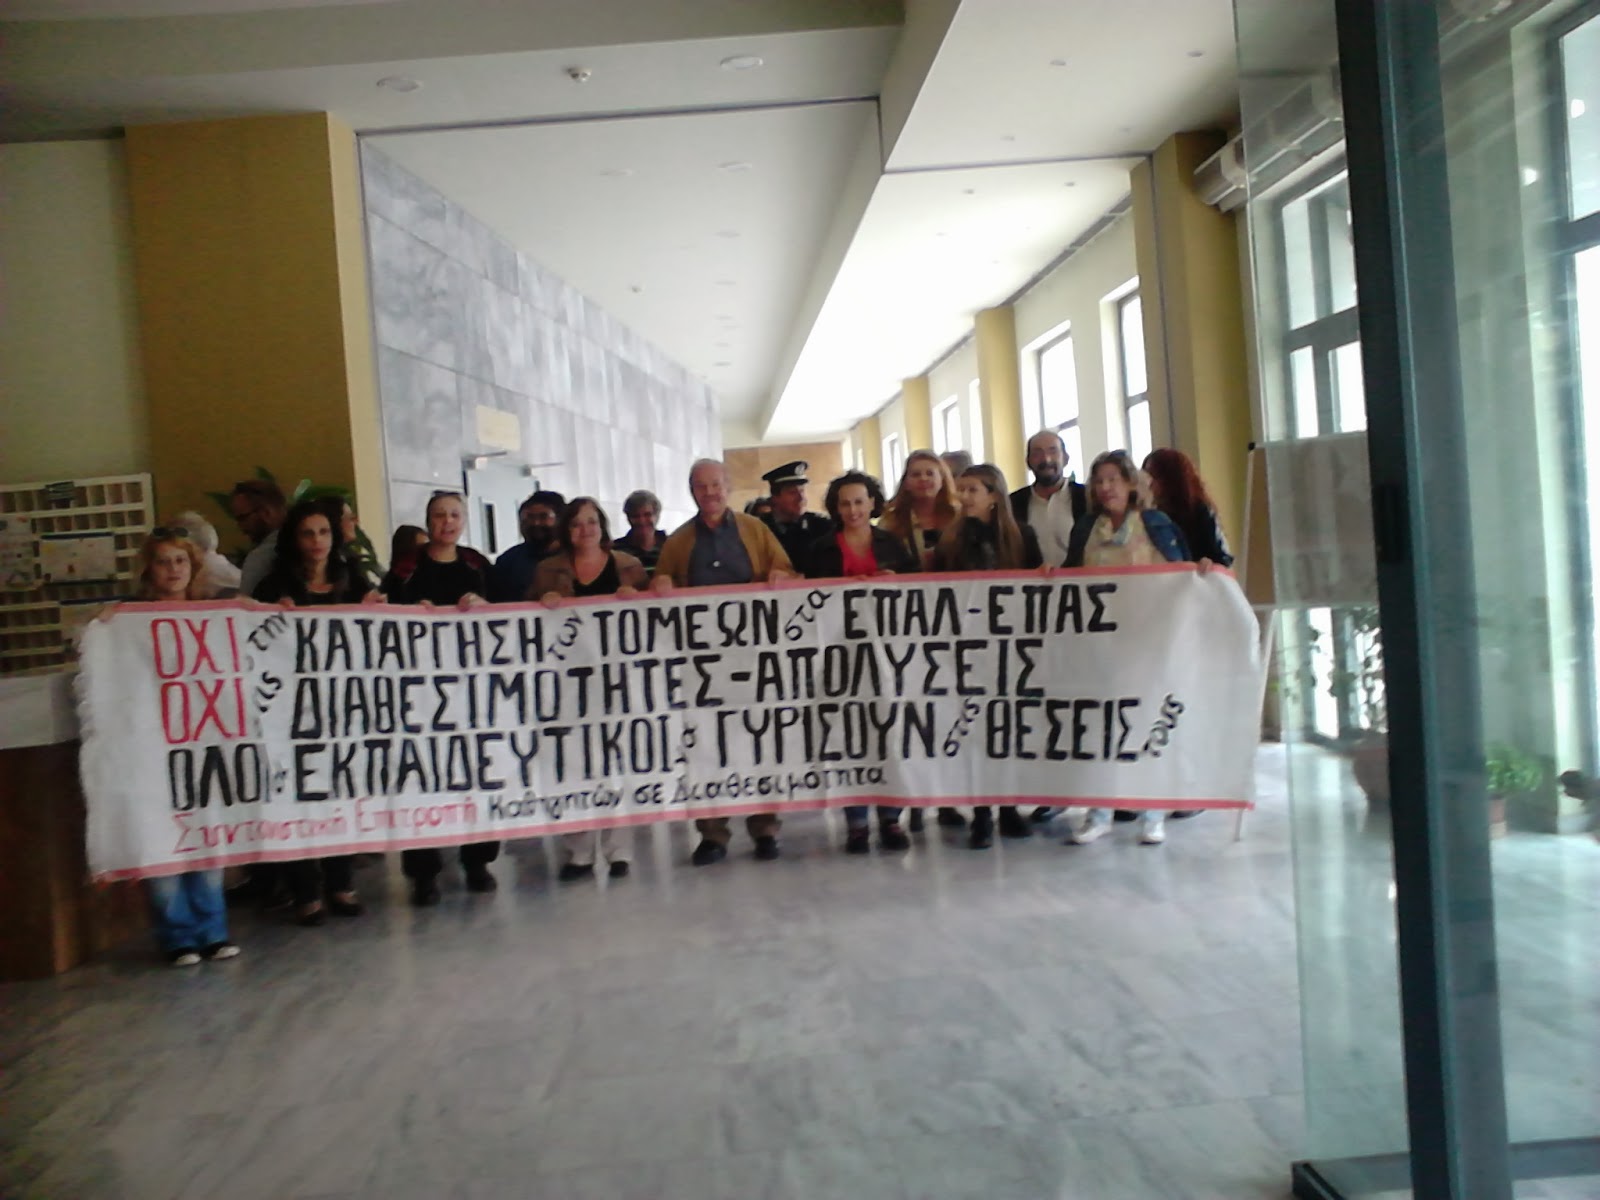 ΟΧΙ στην ΚΑΤΑΡΓΗΣΗ των ΤΟΜΕΩΝ στα ΕΠΑΛ-ΕΠΑΣ
ΟΧΙ στις ΔΙΑΘΕΣΙΜΟΤΗΤΕΣ-ΑΠΟΛΥΣΕΙΣ
ΟΛΟΙ οι ΕΚΠΑΙΔΕΥΤΙΚΟΙ να ΓΥΡΙΣΟΥΝ στις ΘΕΣΕΙΣ τους
Συντονιστική Επιτροπή Καθηγητών σε Διαθεσιμότητα